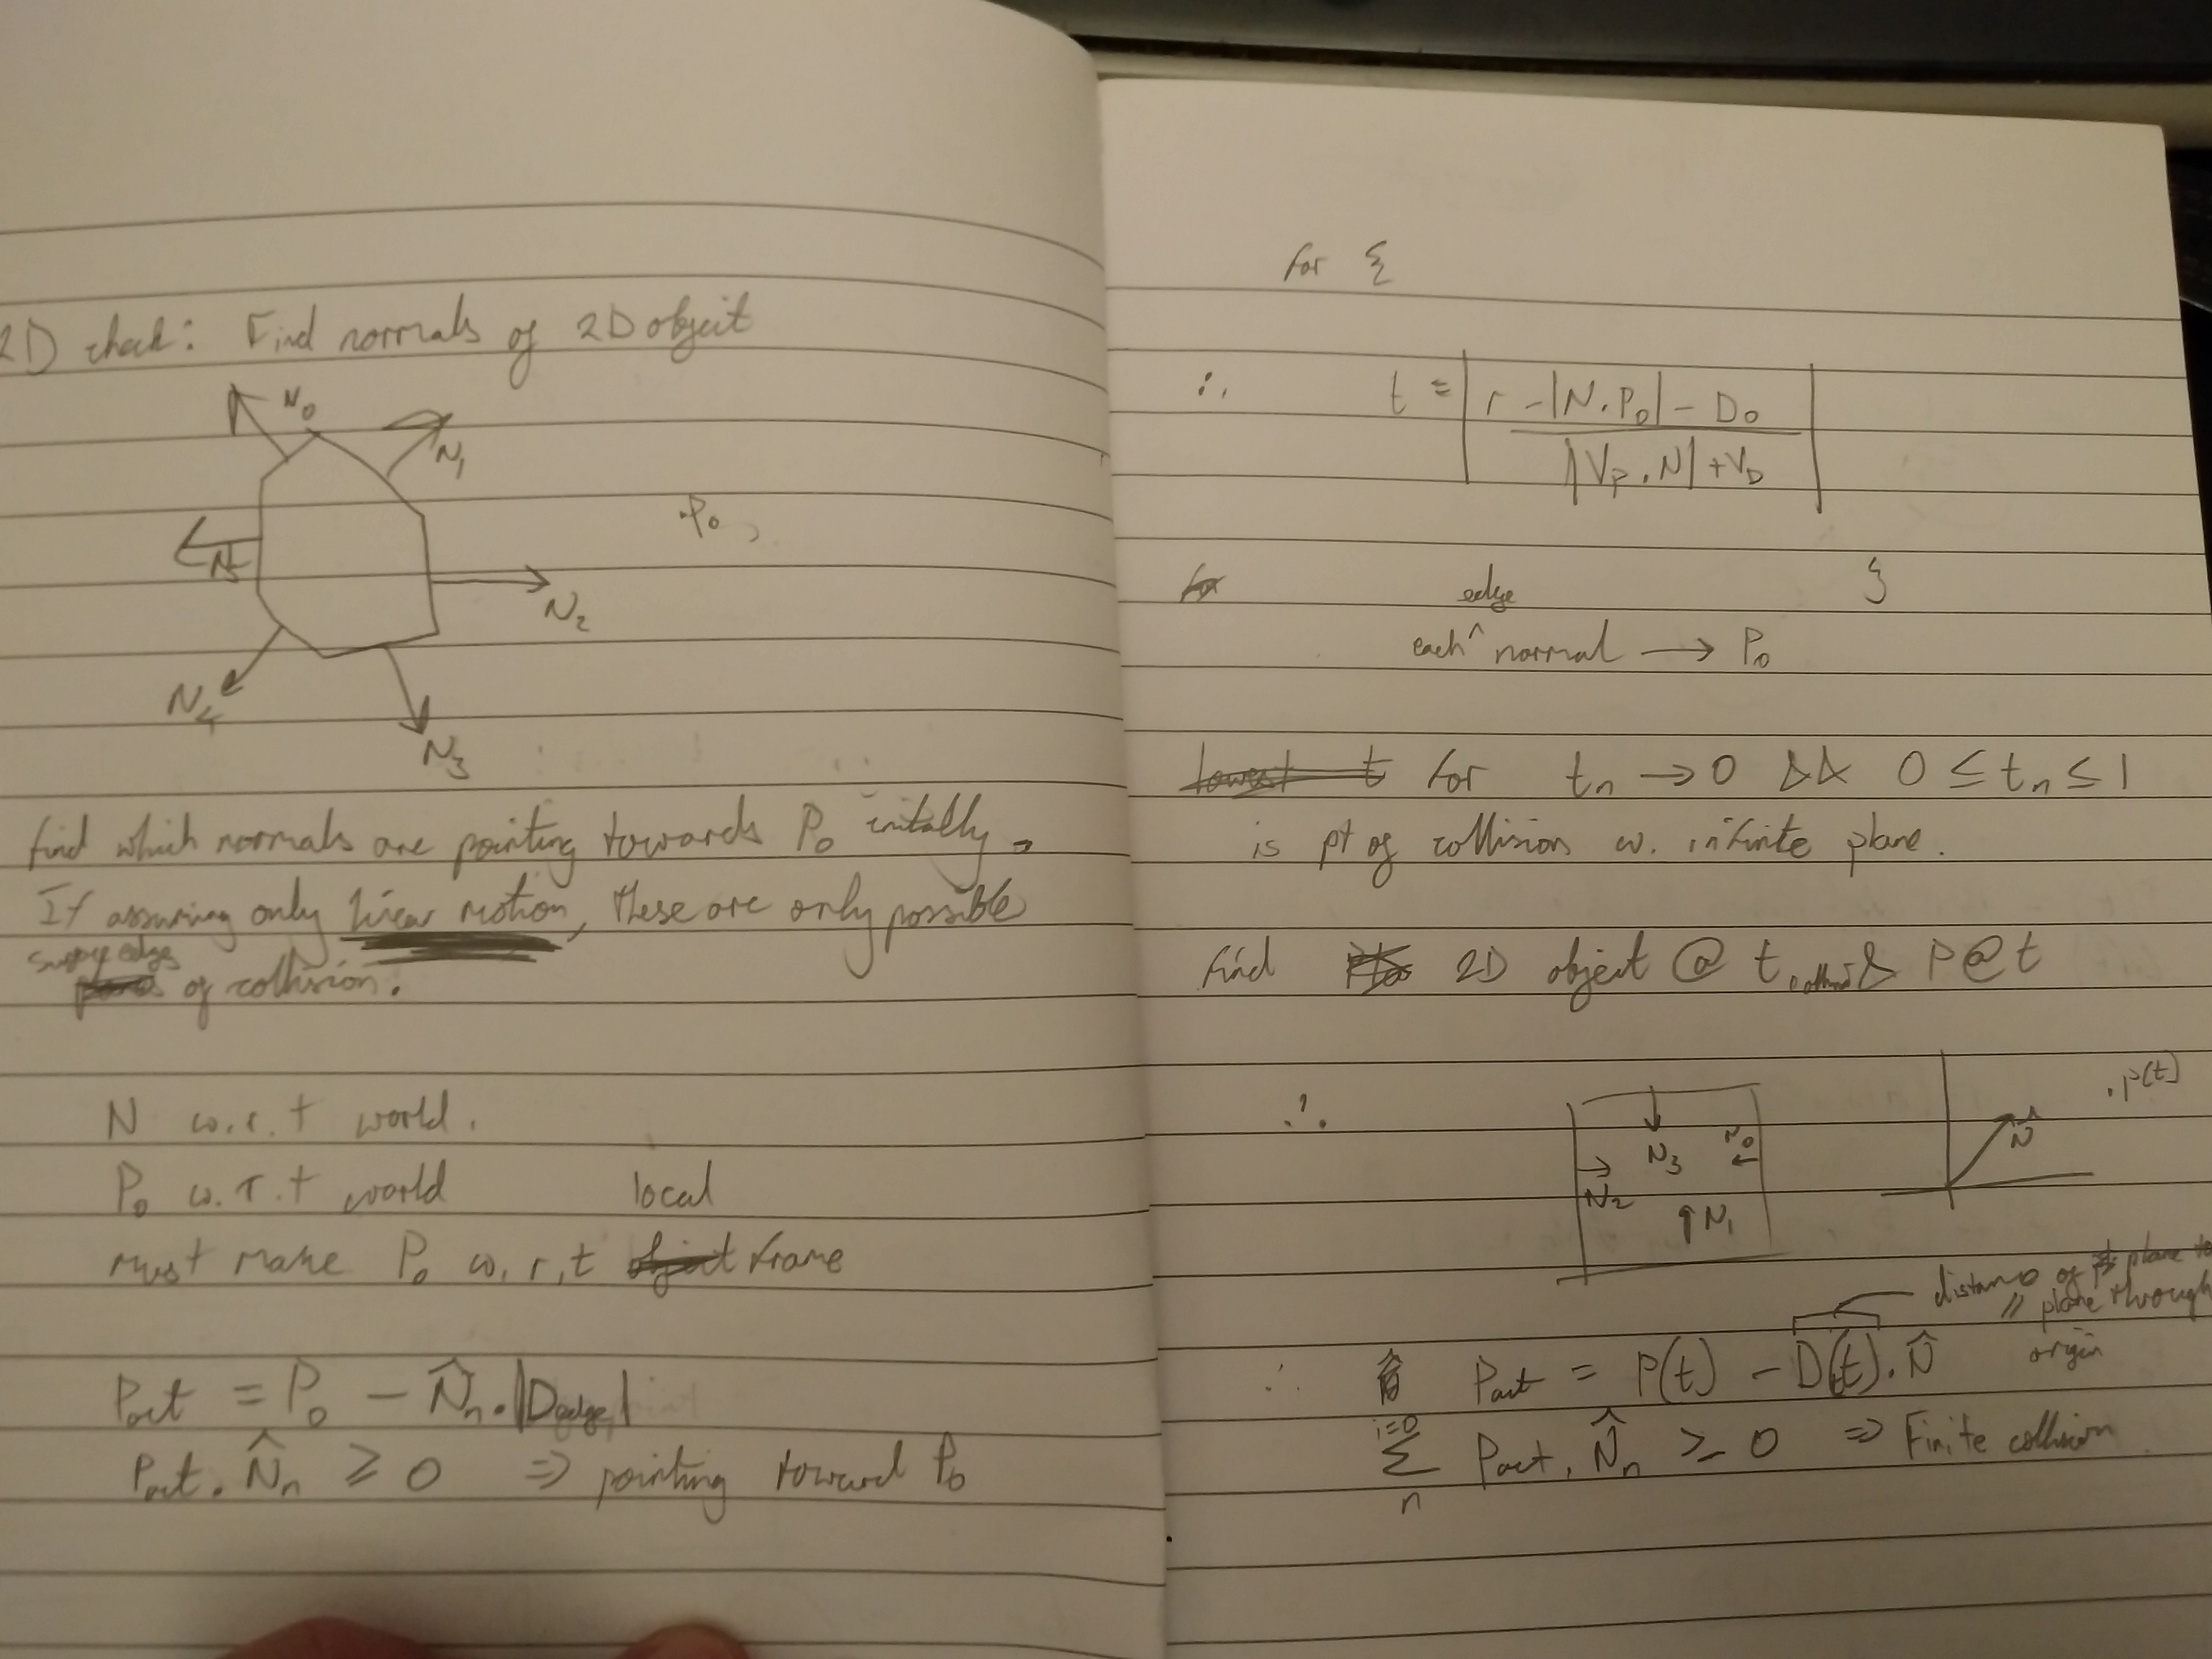 2D check: Find normals of 2D object
N₀
N₁
.P₀
N₅
N₂
N₄
N₃
find which normals are pointing towards P₀ initally.
If assuming only linear motion, these are only possible
edge
of collision.
N w.r.t world.
P₀ w.r.t world
local
must make P₀ w.r.t object frame
Pact = P₀ − N̂ₙ.|Dedge|
Pact. N̂ₙ ≥ 0 ⇒ pointing toward P₀
for {
∴ t = | (r − |N.P₀| − D₀) / (|Vp.N| + VD) |
for
edge
}
each ^ normal → P₀
lowest t for tₙ → 0 && 0 ≤ tₙ ≤ 1
is pt of collision w. infinite plane.
find 2D object @ t collision & P@t
∴
.P(t)
N₃
N₀
N̂
N₂
N₁
distance of plane to
// plane through
origin
∴ Pact = P(t) − D(t).N̂
i=0
Σ Pact. N̂ₙ ≥ 0 ⇒ Finite collision
n